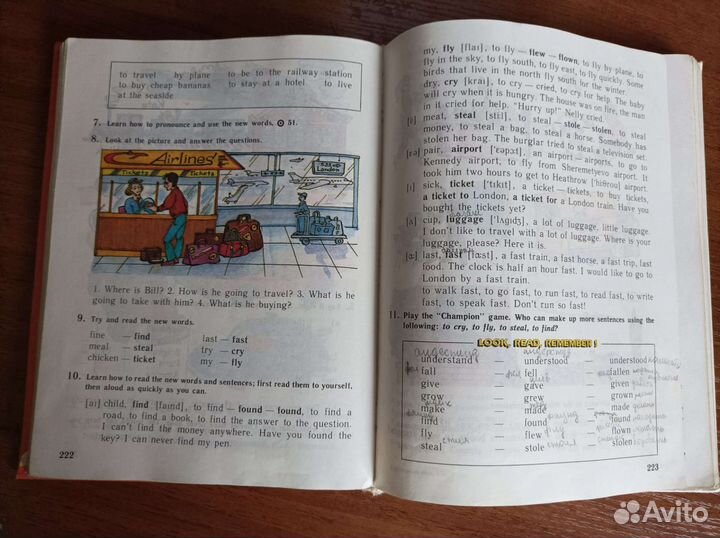 to travel by plane to be to the railway station
to buy cheap bananas to stay at a hotel to live
at the seaside
7. Learn how to pronounce and use the new words. 51.
8. Look at the picture and answer the questions.
Airlines
Tickets Tickets
London
1. Where is Bill? 2. How is he going to travel? 3. What is he
going to take with him? 4. What is he buying?
9. Try and read the new words.
fine — find last — fast
meal — steal try — cry
chicken — ticket my — fly
10. Learn how to read the new words and sentences; first read them to yourself,
then aloud as quickly as you can.
[aɪ] child, find [faɪnd], to find — found — found, to find a
road, to find a book, to find the answer to the question.
I can't find the money anywhere. Have you found the
key? I can never find my pen.
222
my, fly [flaɪ], to fly — flew — flown, to fly by plane, to
fly in the sky, to fly south, to fly east, to fly quickly. Some
birds that live in the north fly south for the winter.
dry, cry [kraɪ], to cry — cried, to cry for help. The baby
will cry when it is hungry. The house was on fire, the man
in it cried for help. "Hurry up!" Nelly cried.
[i:] meat, steal [sti:l], to steal — stole — stolen, to steal
money, to steal a bag, to steal a horse. Somebody has
stolen her bag. The burglar tried to steal a television set.
[eə] pair, airport ['eəpɔ:t], an airport — airports, to go to
Kennedy airport, to fly from Sheremetyevo airport. It
took him two hours to get to Heathrow ['hi:θrəu] airport.
[ɪ] sick, ticket ['tɪkɪt], a ticket — tickets, to buy tickets,
a ticket to London, a ticket for a London train. Have you
bought the tickets yet?
[ʌ] cup, luggage ['lʌgɪdʒ], a lot of luggage, little luggage.
I don't like to travel with a lot of luggage. Where is your
luggage, please? Here it is.
[ɑ:] last, fast [fɑ:st], a fast train, a fast horse, a fast trip, fast
food. The clock is half an hour fast. I would like to go to
London by a fast train.
to walk fast, to go fast, to run fast, to read fast, to write
fast, to speak fast. Don't run so fast!
11. Play the "Champion" game. Who can make up more sentences using the
following: to cry, to fly, to steal, to find?
LOOK, READ, REMEMBER!
understand — understood — understood
fall — fell — fallen
give — gave — given
grow — grew — grown
make — made — made
find — found — found
fly — flew — flown
steal — stole — stolen
223
Avito